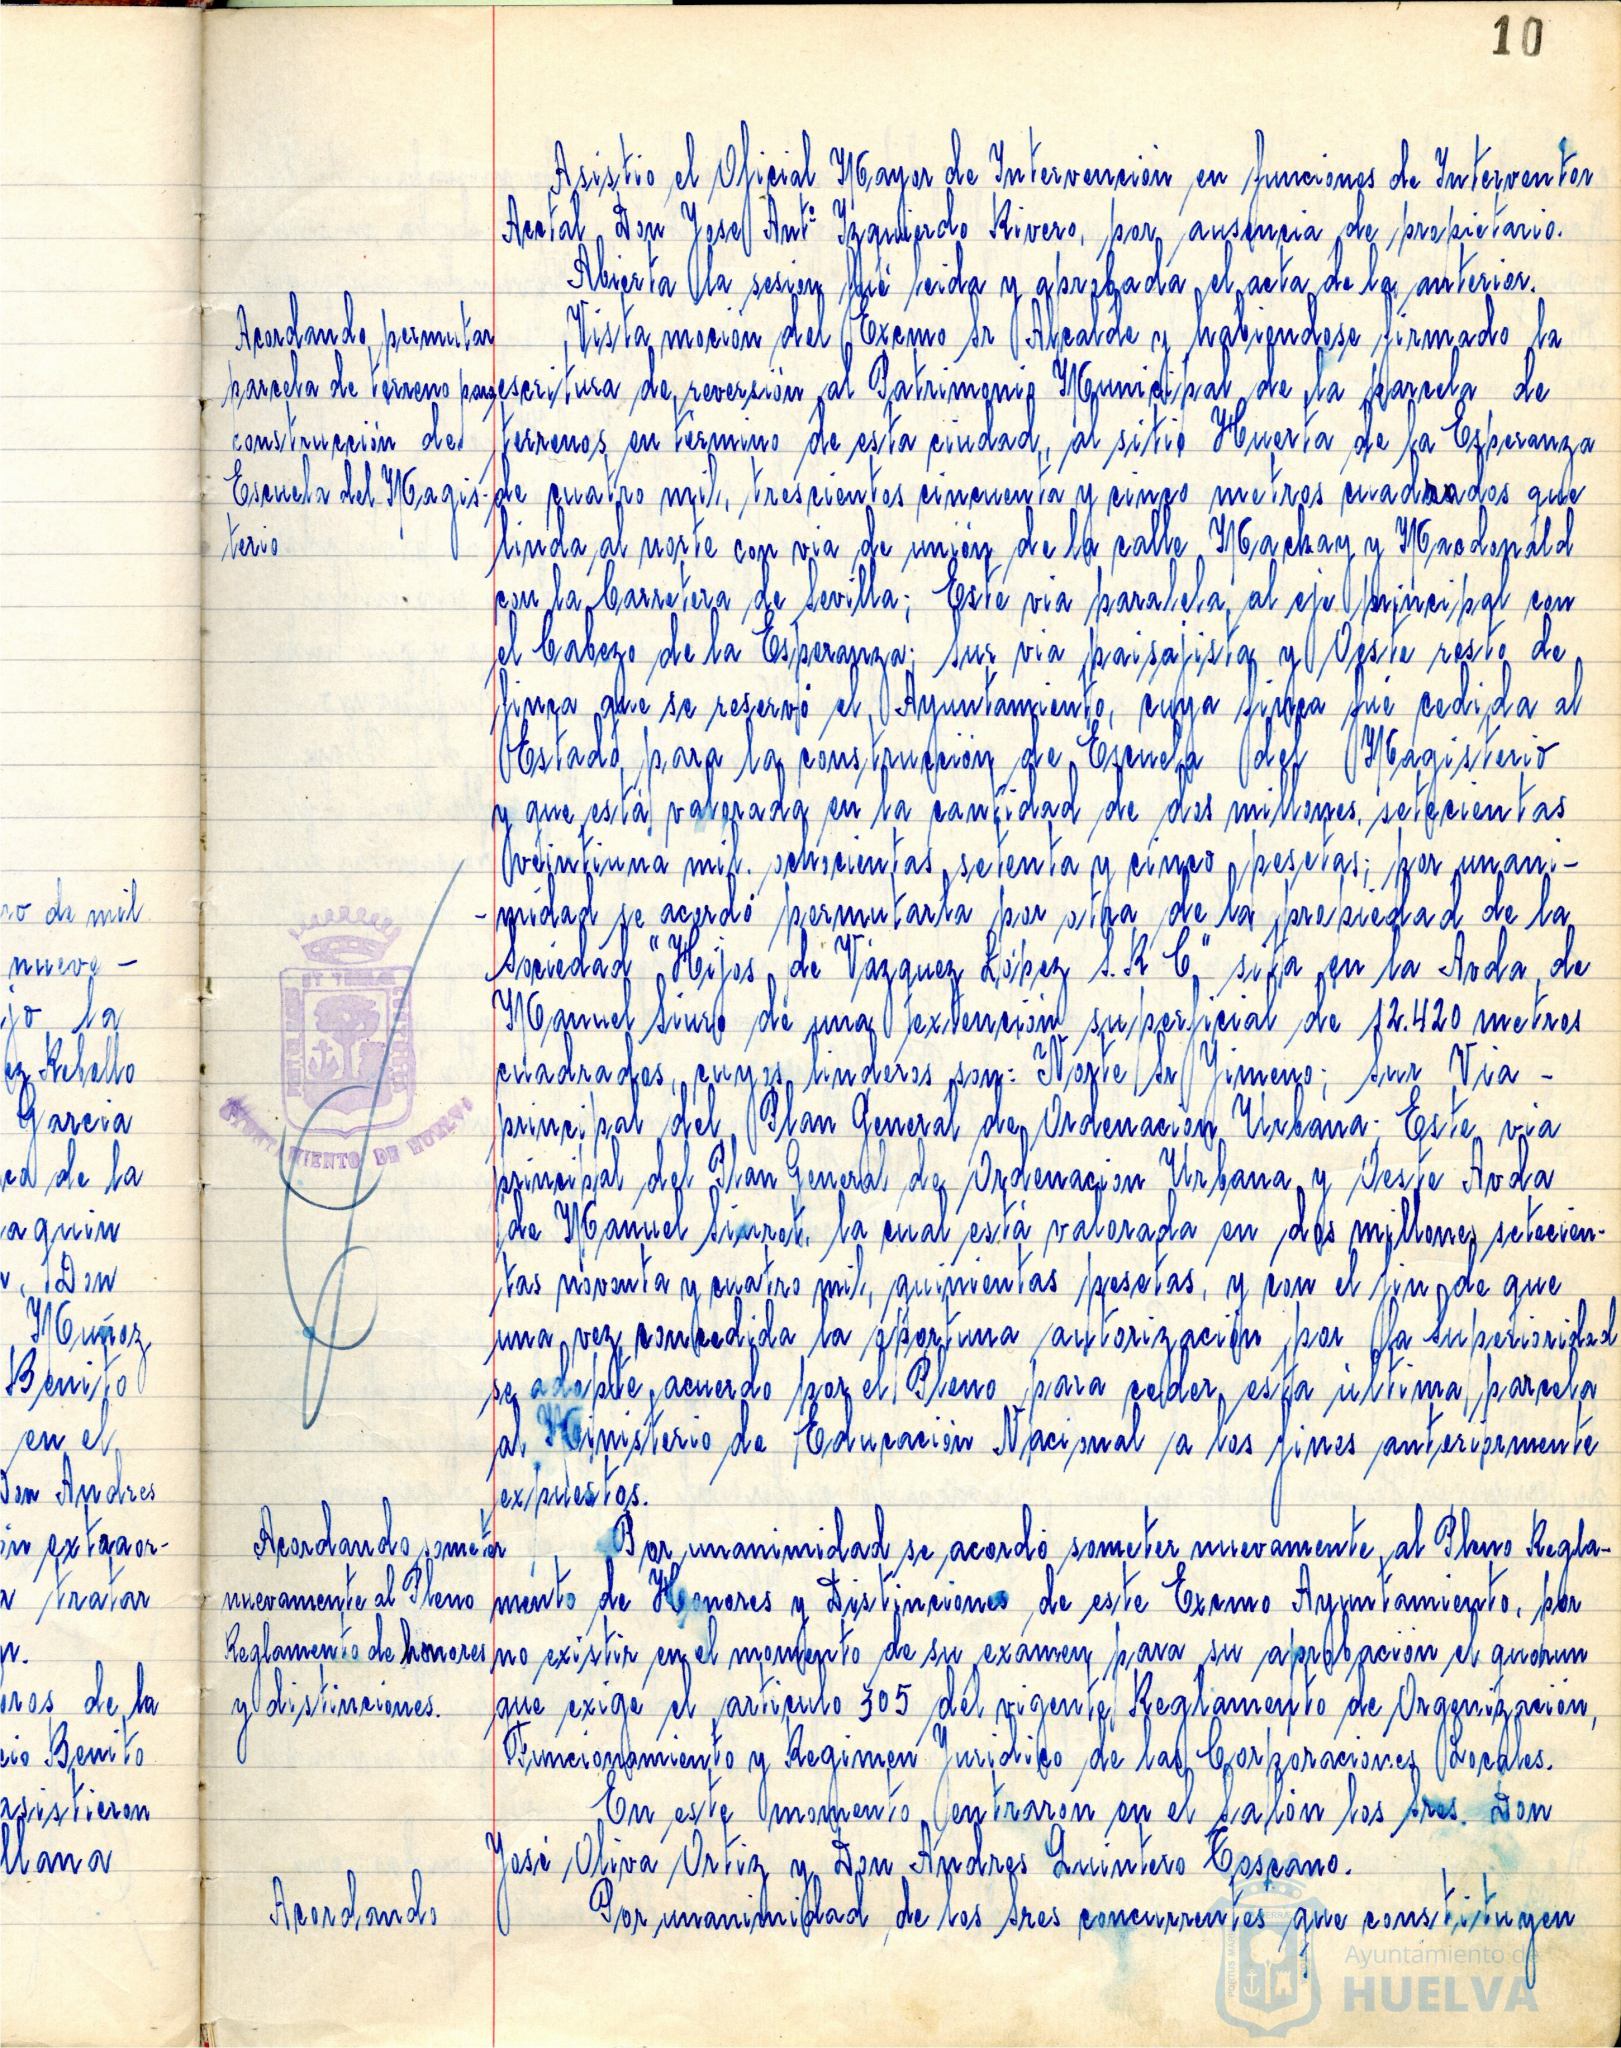 10
Asistio el Oficial Mayor de Intervención en funciones de Interventor
Acctal Don Jose Antº Izquierdo Rivero, por ausencia de propietario.
Abierta la sesion fué leida y aprobada el acta de la anterior.
Acordando permutar
parcela de terreno para
construcción de
Escuela del Magis-
terio
Vista moción del Excmo Sr Alcalde y habiendose firmado la
escritura de reversión al Patrimonio Municipal de la parcela de
terrenos en término de esta ciudad, al sitio Huerta de la Esperanza
de cuatro mil, trescientos cincuenta y cinco metros cuadrados que
linda al norte con via de unión de la calle Mackay y Macdonald
con la Carretera de Sevilla; Este via paralela al eje principal con
el Cabezo de la Esperanza; Sur via paisajista y Oeste resto de
finca que se reservó el Ayuntamiento, cuya finca fué cedida al
Estado para la construcción de Escuela del Magisterio
y que está valorada en la cantidad de dos millones, setecientas
veintiuna mil. ochocientas setenta y cinco pesetas; por unani-
-midad se acordó permutarla por otra de la propiedad de la
Sociedad "Hijos de Vázquez López S.R.C" sita en la Avda de
Manuel Siuro de una extención superficial de 12.420 metros
cuadrados, cuyos linderos son: Norte Sr Jimeno; Sur Via -
principal del Plan General de Ordenación Urbana; Este via
principal del Plan General de Ordenacion Urbana y Oeste Avda
de Manuel Siurot, la cual está valorada en dos millones setecien-
tas noventa y cuatro mil, quinientas pesetas, y con el fin de que
una vez concedida la oportuna autorización por la Superioridad
se adopte acuerdo por el Pleno para ceder esta última parcela
al Ministerio de Educación Nacional a los fines anteriormente
expuestos.
Acordando someter
nuevamente al Pleno
Reglamento de honores
y distinciones.
Por unanimidad se acordó someter nuevamente al Pleno Regla-
mento de Honores y Distinciones de este Excmo Ayuntamiento, por
no existir en el momento de su exámen para su aprobación el quorum
que exige el artículo 305 del vigente Reglamento de Organización,
Funcionamiento y Regimen Juridico de las Corporaciones Locales.
En este momento entraron en el salón los sres. Don
José Oliva Ortiz y Don Andres Quintero Toscano.
Acordando
Por unanimidad de los sres concurrentes que constituyen
ro de mil
nueve -
ijo la
ez Rebollo
Garcia
ca de la
aquin
Don
Muñoz
Benito
en el
Don Andres
ón extraor-
a tratar
oros de la
cio Benito
asistieron
llana
AYUNTAMIENTO DE HUELVA
Ayuntamiento de
HUELVA